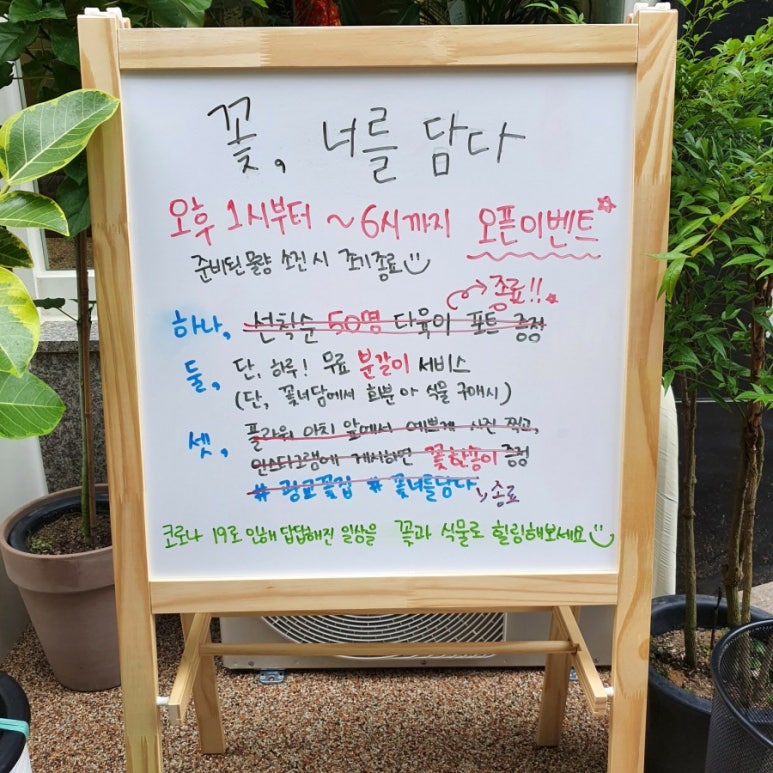 꽃, 너를 담다
오후 1시부터 ~6시까지 오픈이벤트
준비된 물량 소진시 조기종료
종료!!
하나, 선착순 50명 다육이 포트 증정
둘, 단, 하루! 무료 분갈이 서비스
(단, 꽃너담에서 화분 and 식물 구매시)
셋, 플라워 아치 앞에서 예쁘게 사진 찍고,
인스타그램에 게시하면 꽃한송이 증정
# 광교꽃집 # 꽃너를담다 종료
코로나 19로 인해 답답해진 일상을 꽃과 식물로 힐링해보세요